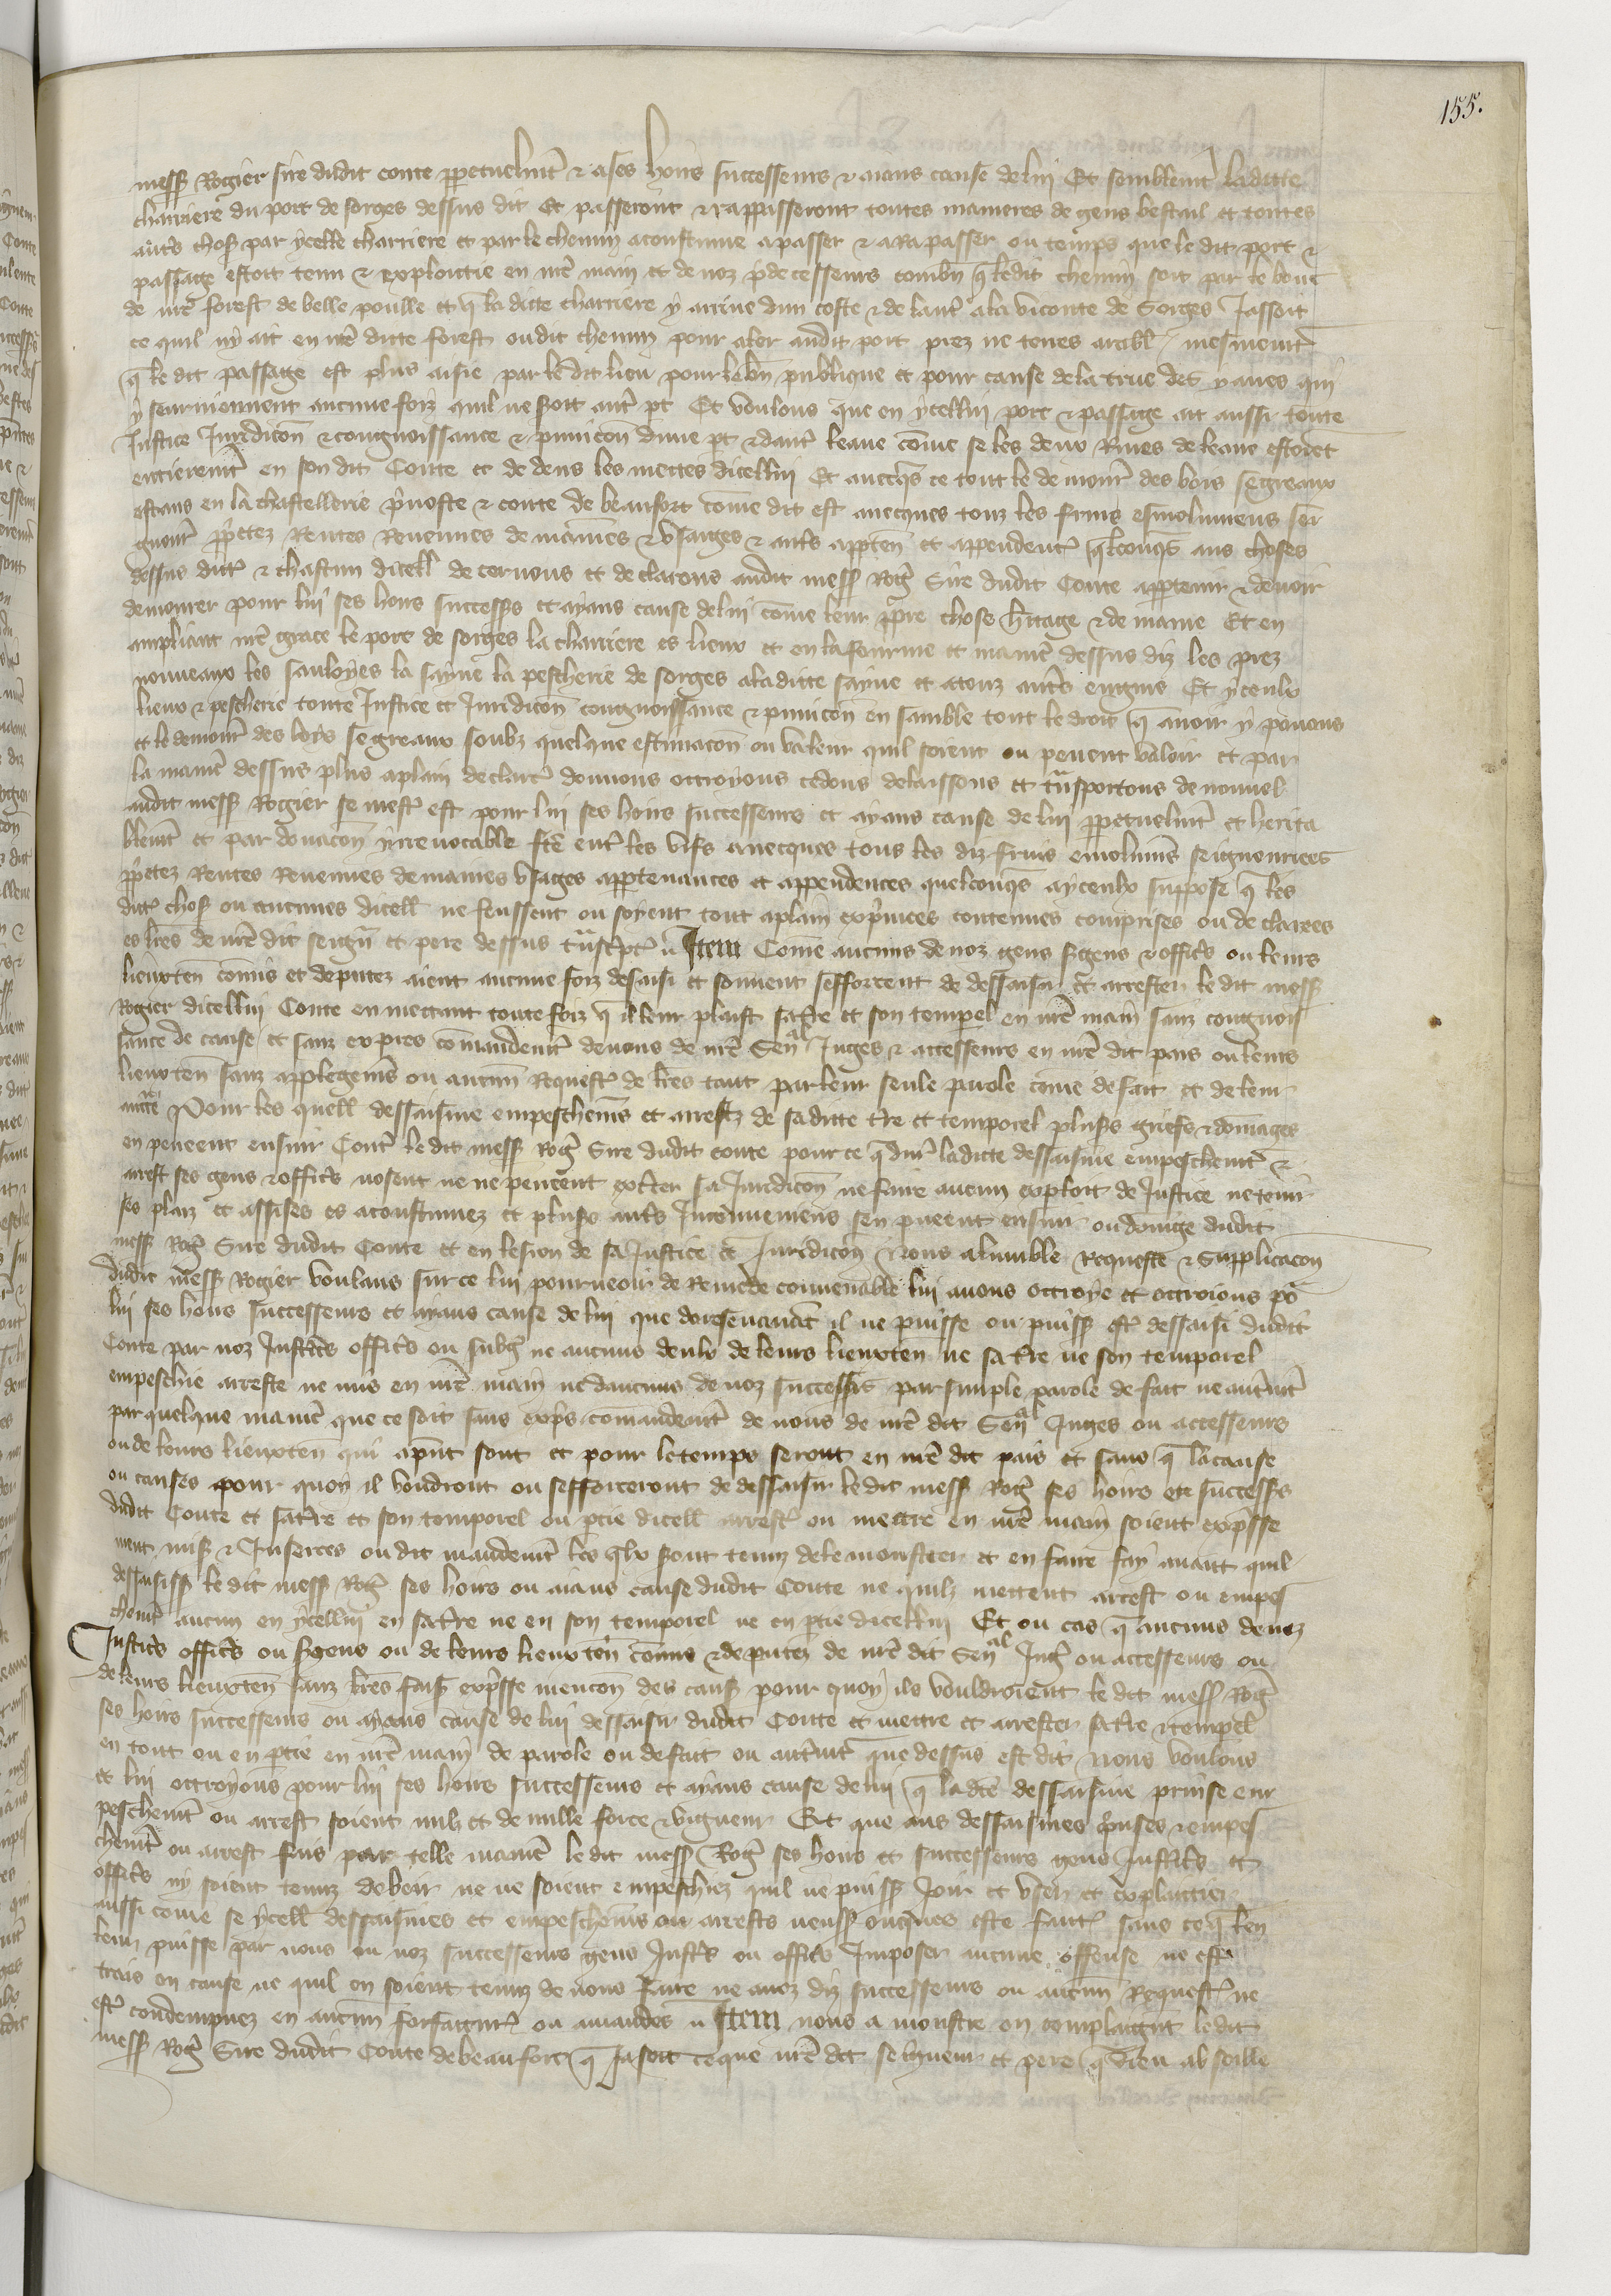 155.
mess Rogier sire dudit conte ppetuelmt & a ses hoirs successeurs & aians cause de lui Et semblemt ladicte
charriere du port de sorges dessus dit Et passeront & rappasseront toutes manieres de gens bestail et toutes
autrs chos par ycelle charriere et par le chemin acoustume a passer & a Rapasser ou temps que le dit port &
passage estoit tenu & exploictie en nre main et de noz pdecesseurs combn q ledit chemin soit par le bout
de nre forest de belle poulle et q la dicte charriere y arrive dun coste & de lautr a la viconte de Sorges Jassoit
ce quil ny ait en nre dicte forest ou dit chemin pour aler audit port prez ne terres arabl mesmemt
q le dit passage est plus aisie par ledit lieu pour le bn publique et pour cause de la crue des yaues qui
y seurviennent aucune foiz quil ne soit autr pt Et voulons que en ycellui port & passage ait aussi toute
Justice Juridicon & congnoissance & punicon dune pt & dautr leaue come se les deux Rives de leaue estoiet
entieremt en son dit Conte et de dens les mettes dicellui Et avecqs ce tout le demour des bois segreaux
estans en la chastellerie pvoste & conte de beaufort come dit est avecques touz les fruis esmolumens ser
guour ppetez Rentes Revenues demaines & usaiges & autrs appten et appendent qlconqs aus choses
dessus dict & chascun dicell decernons et declarons audit mess Rog Sire dudit Conte apptenir & devoir
demourer pour lui ses hoirs successrs et ayans cause de lui come leur ppre chose hitage & demaine Et en
ampliant nre grace le port de sorges la charriere es lieux et en la fourme et manie dessus diz les prez
nouveaux les sauloyes la sayne la pescherie de sorges a la dicte sayne et a touz autrs engins Et yceulx
lieux & pescherie toute Justice et Juridicon congnoissance & punicon en samble tout le droit q avoir y povons
et le demour des boys segreaux soubz quelque estimacon ou valeur quil soient ou peuent valoir et par
la manie dessus plus aplain declaire donnons octroyons cedons delaissons et tnsportons de nouvel
audit mess Rogier se mest est pour lui ses hoirs successeurs et ayans cause de lui ppetuelmt et herita
blemt et par donacon irrevocable fte entr les vifs avecques tous les diz fruis emolumes seignouriees
ppetez Rentes Revenues demaines usages apptenances et appendences quelconqs a yceulx suppose q les
dict chos ou aucunes dicell ne feussent ou soyent tout aplain exprimees contenues comprises ou declarees
es lres de nre dit seign et pere dessus tnscpt Item Come aucuns de noz gens sgens & officrs ou leurs
lieuxten comis et deputez aient aucune foiz desaisi et souvent sefforcent de dessaisir & arrester le dit mess
Rogier dicellui Conte en mettant toute foiz q il leur plaist sa tre et son temporel en nre main sanz congnois
sance de cause et sanz expres comandemt de nous de nre Senal Juges & accesseurs en nre dit pais ou leurs
lieuxten sanz applegems ou aucun Request de lres tant par leur seule parole come de fait et de leur
aucte Pour les quell dessaisine empeschems et arrestz de sa dicte tre et temporel plusrs griefs & domages
en peuent ensuir Contr le dit mess Rog Sire dudit conte pour ce q dur ladicte dessaisine empeschemt &
arrest ses gens & officrs nosent ne ne peuent excer sa Juridicon ne faire aucun exploit de Justice ne tenir
ses plaiz et assises es acoustumez et plusrs autrs Inconveniens sen pueent ensuir ou domge dudit
mess Rog Sire dudit Conte et en lesion de sa Justice & Juridicon Nous a lumble Requeste & Supplicacon
dudit mess Rogier voulans sur ce lui pourveoir de Remede convenable lui avons octroye et octroions po
lui ses hoirs successeurs et ayans cause de lui que doresenavat il ne puisse ou puiss est dessaisi dudit
Conte par noz Justicrs officrs ou subg ne aucuns deulx de leurs lieuxten ne sa tre ne son temporel
empeschie arreste ne mis en nre main ne daucuns de noz successrs par simple parole de fait ne autmt
par quelque manie que ce soit sans expres comandemt de nous de nre dit Senal Juges ou accesseurs
ou de leurs lieuxten qui a pnt sont et pour le temps seront en nre dit pais et sans q la cause
ou causes pour quoy il voudront ou sefforceront de dessaisir le dit mess Rog ses hoirs et successrs
dudit Conte et sa tre et son temporel ou ptie dicell arrest ou mettre en nre main soient expsse
ment mis & Inserees ou dit mandemt les qlx sont tenuz de le monstrer et en faire foy avant quil
dessaisiss le dit mess Rog ses hoirs ou aians cause dudit Conte ne quilz mettent arrest ou empes
chemt aucun en ycellui en sa tre ne en son temporel ne en ptie dicellui Et ou cas q aucuns de noz
Justicrs officrs ou sgens ou de leurs lieuxten comis & deputez de nre dit Senal Jug ou accesseurs ou
de leurs lieuxten sanz lres fais expsse mencon des caus pour quoy ils vouldroient le dit mess Rog
ses hoirs successeurs ou ayans cause de lui dessaisir dudit Conte et mettre et arrester sa tre & tempel
en tout ou en ptie en nre main de parole ou de fait ou autmt que dessus est dit Nous voulons
et lui octroyons pour lui ses hoirs successeurs et ayans cause de lui q la dte dessaisine prinse em
peschemt ou arrest soient nulz et de nulle force & vigueur Et que aus dessaisines pnses & empes
chemt ou arrest fais par telle manie le dit mess Rog ses hoirs et successeurs gens Justicrs et
officrs ny soient tenuz debeir ne ne soient empeschiez quil ne puiss Joir et user et exploictier
aussi come se ycell dessaisines et empeschems ou arrests neuss oncques este faict sans ce q len
leur puisse par nous ou noz successeurs gens Justicrs ou officrs Imposer aucune offense ne est
trais en cause ne quil en soient tenuz de nous faire ne a noz diz successeurs ou aucun Request ne
est condempnez en aucun forfaictur ou amandes Item nous a monstre en complaignt ledit
mess Rog Sire dudit Conte de beaufort q Jasoit ce que nre dit seigneur et pere q dieu absoille